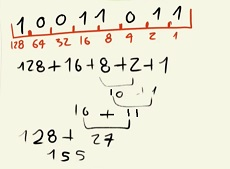 1 0 0 1 1 0 1 1
128 64 32 16 8 4 2 1
128+16+8+2+1
10 + 1
16 + 11
128+ 27
155